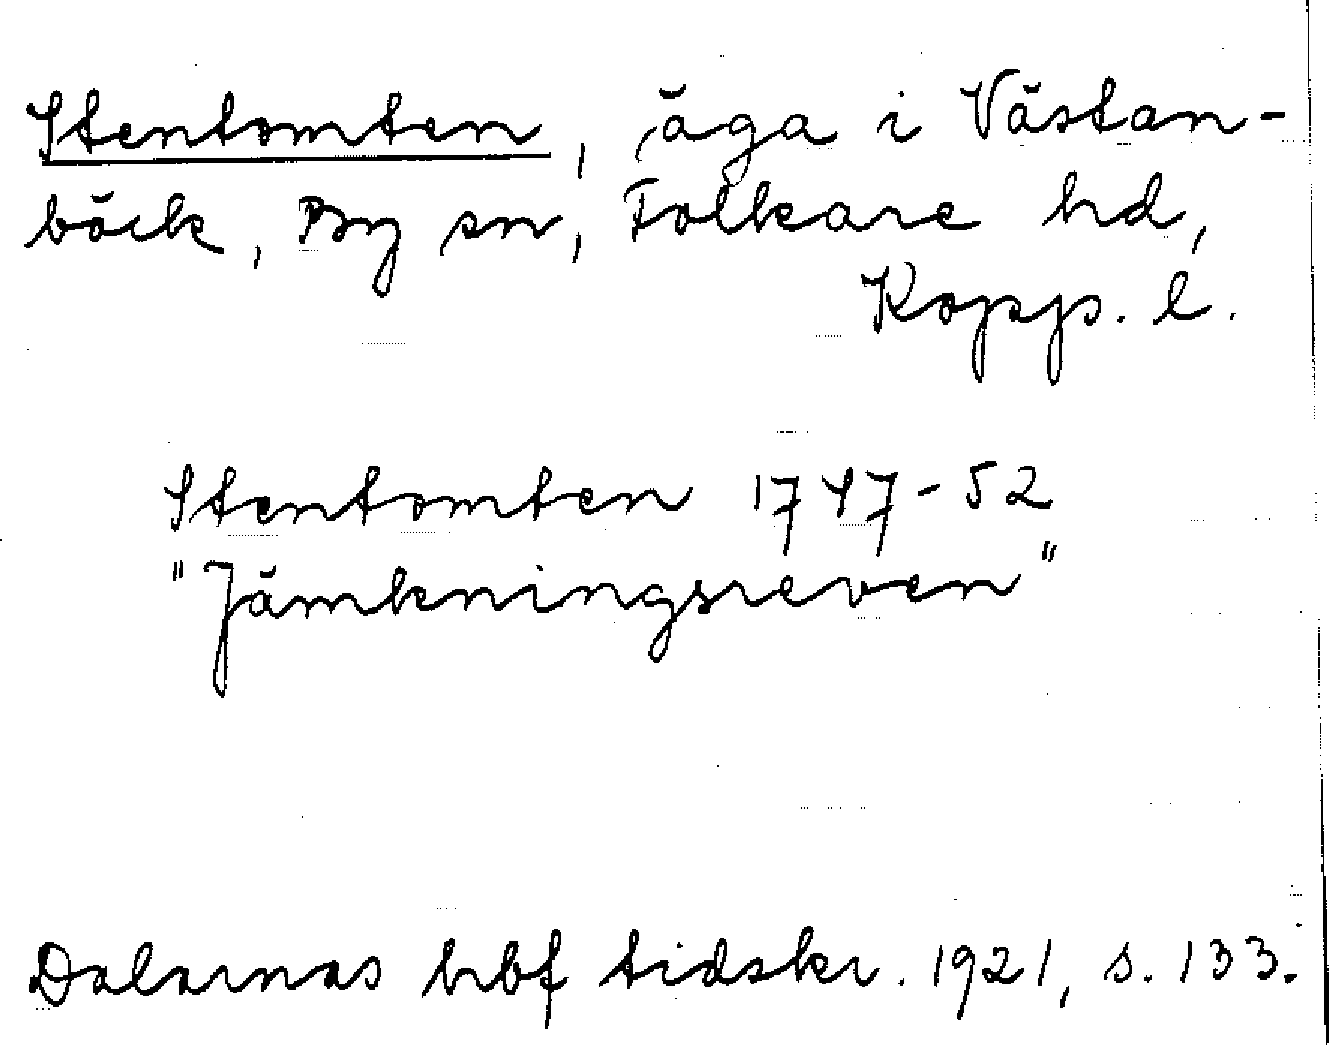 Stentomten, äga i Västan-
böck, By sn, Folkare hd,
Kopp. l.
Stentomten 1747-52
"Jämkningsreven"
Dalarnas hbf tidskr. 1921, s. 133.